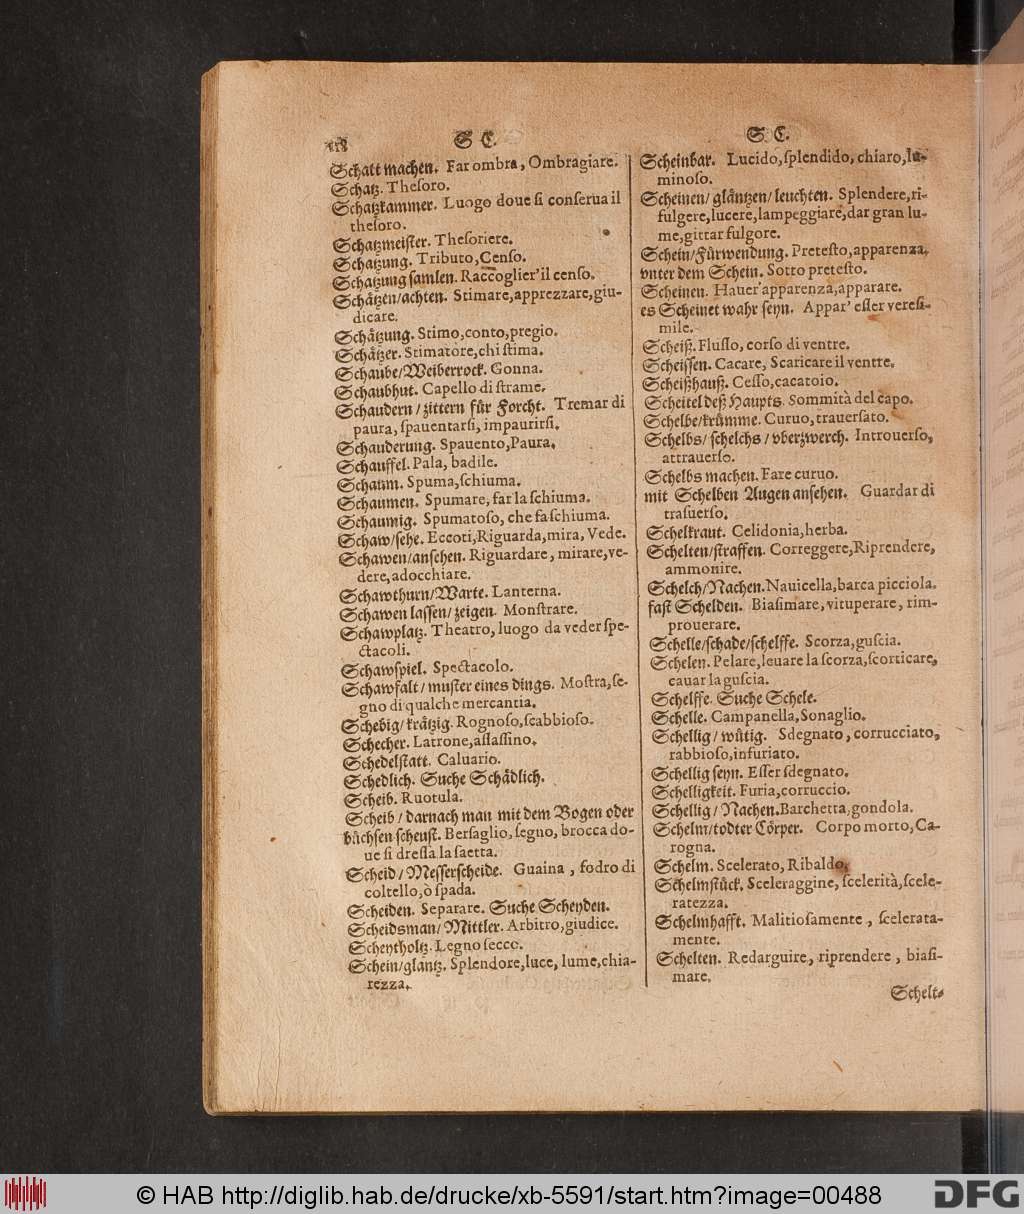 S C.
Schatt machen. Far ombra, Ombragiare.
Schatz. Theſoro.
Schatzkammer. Luogo doue ſi conſerua il
theſoro.
Schatzmeiſter. Theſoriere.
Schatzung. Tributo, Cenſo.
Schatzung ſamlen. Raccoglier'il cenſo.
Schaͤtzen/achten. Stimare, apprezzare, giu-
dicare.
Schaͤtzung. Stimo, conto, pregio.
Schaͤtzer. Stimatore, chi ſtima.
Schaube/Weiberrock. Gonna.
Schaubhut. Capello di ſtrame.
Schaudern/zittern fuͤr Forcht. Tremar di
paura, ſpauentarſi, impaurirſi.
Schauderung. Spauento, Paura.
Schauffel. Pala, badile.
Schaum. Spuma, ſchiuma.
Schaumen. Spumare, far la ſchiuma.
Schaumig. Spumatoſo, che fa ſchiuma.
Schaw/ſehe. Eccoti, Riguarda, mira, Vede.
Schawen/anſehen. Riguardare, mirare, ve-
dere, adocchiare.
Schawthurn/Warte. Lanterna.
Schawen laſſen/zeigen. Monſtrare.
Schawplatz. Theatro, luogo da veder ſpe-
ctacoli.
Schawſpiel. Spectacolo.
Schawfalt/muſter eines dings. Moſtra, ſe-
gno di qualche mercantia.
Schebig/kraͤtzig. Rognoſo, ſcabbioſo.
Schecher. Latrone, aſſaſſino.
Schedelſtatt. Caluario.
Schedlich. Suche Schaͤdlich.
Scheib. Ruotula.
Scheib/darnach man mit dem Bogen oder
buͤchſen ſcheuſt. Berſaglio, ſegno, brocca do-
ue ſi dreſſa la ſaetta.
Scheid/Meſſerſcheide. Guaina, fodro di
coltello, ò ſpada.
Scheiden. Separare. Suche Scheyden.
Scheidsman/Mittler. Arbitro, giudice.
Scheytholtz. Legno ſecco.
Schein/glantz. Splendore, luce, lume, chia-
rezza.
S C.
Scheinbar. Lucido, ſplendido, chiaro, lu-
minoſo.
Scheinen/glaͤntzen/leuchten. Splendere, ri-
fulgere, lucere, lampeggiare, dar gran lu-
me, gittar fulgore.
Schein/Fuͤrwendung. Preteſto, apparenza.
vnter dem Schein. Sotto preteſto.
Scheinen. Hauer'apparenza, apparare.
es Scheinet wahr ſeyn. Appar'eſſer vereſi-
mile.
Scheiß. Fluſſo, corſo di ventre.
Scheiſſen. Cacare, Scaricare il ventre.
Scheißhauß. Ceſſo, cacatoio.
Scheitel deß Haupts. Sommità del capo.
Schelbe/kruͤmme. Curuo, trauerſato.
Schelbs/ſchelchs/vberzwerch. Introuerſo,
attrauerſo.
Schelbs machen. Fare curuo.
mit Schelben Augen anſehen. Guardar di
trauerſo.
Schelkraut. Celidonia, herba.
Schelten/ſtraffen. Correggere, Riprendere,
ammonire.
Schelch/Nachen. Nauicella, barca picciola.
faſt Schelden. Biaſimare, vituperare, rim-
prouerare.
Schelle/ſchade/ſchelffe. Scorza, guſcia.
Schelen. Pelare, leuare la ſcorza, ſcorticare,
cauar la guſcia.
Schelffe. Suche Schele.
Schelle. Campanella, Sonaglio.
Schellig/wuͤtig. Sdegnato, corrucciato,
rabbioſo, infuriato.
Schellig ſeyn. Eſſer ſdegnato.
Schelligkeit. Furia, corruccio.
Schellig/Nachen. Barchetta, gondola.
Schelm/todter Coͤrper. Corpo morto, Ca-
rogna.
Schelm. Scelerato, Ribaldo.
Schelmſtuͤck. Sceleraggine, ſcelerità, ſcele-
ratezza.
Schelmhafft. Malitioſamente, ſcelerata-
mente.
Schelten. Redarguire, riprendere, biaſi-
mare.
Schelt-
© HAB http://diglib.hab.de/drucke/xb-5591/start.htm?image=00488
DFG